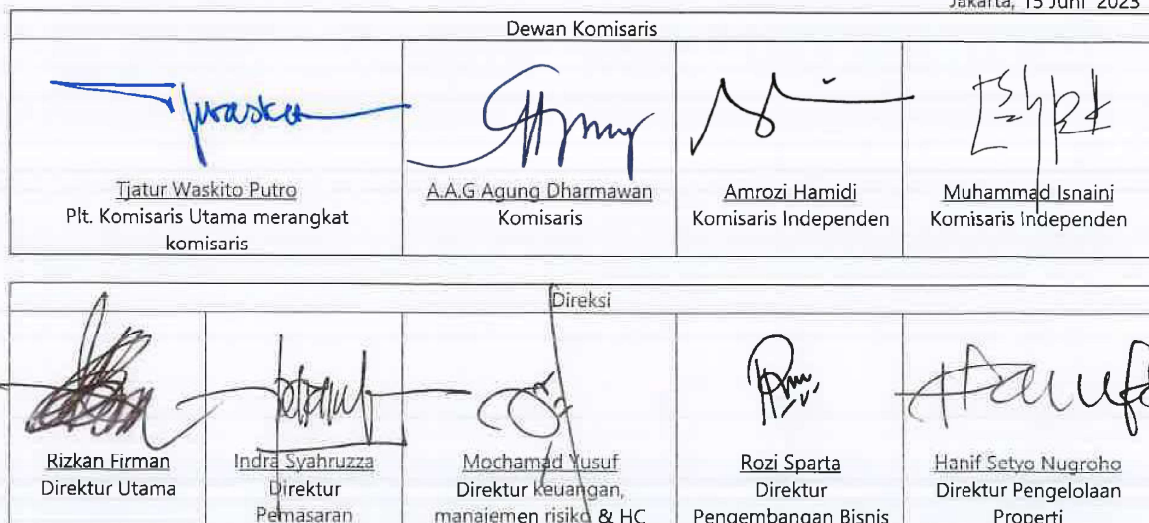 Jakarta, 15 Juni 2023
Dewan Komisaris
Tjatur Waskito Putro
Plt. Komisaris Utama merangkat
komisaris
A.A.G Agung Dharmawan
Komisaris
Amrozi Hamidi
Komisaris Independen
Muhammad Isnaini
Komisaris Independen
Direksi
Rizkan Firman
Direktur Utama
Indra Syahruzza
Direktur
Pemasaran
Mochamad Yusuf
Direktur keuangan,
manajemen risiko & HC
Rozi Sparta
Direktur
Pengembangan Bisnis
Hanif Setyo Nugroho
Direktur Pengelolaan
Properti